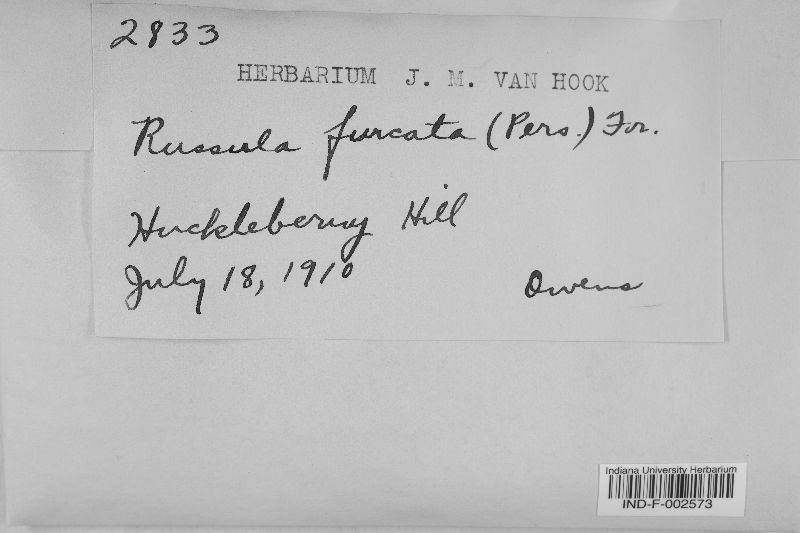 2833
HERBARIUM J. M. VAN HOOK
Russula furcata (Pers.) For.
Huckleberry Hill
July 18, 1910
Owens
Indiana University Herbarium
IND-F-002573